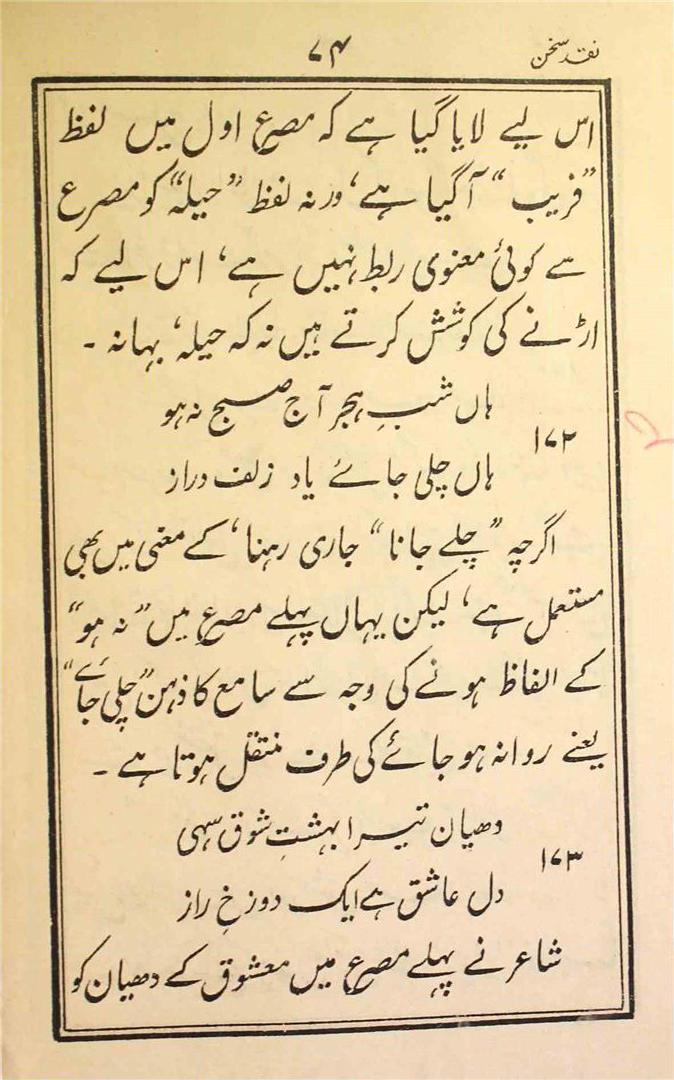 نقد سخن
۷۴
اس لیے لایا گیا ہے کہ مصرع اول میں لفظ
”فریب“ آگیا ہے، ورنہ لفظ ”حیلہ“ کو مصرع
سے کوئی معنوی ربط نہیں ہے، اس لیے کہ
اڑنے کی کوشش کرتے ہیں نہ کہ حیلہ، بہانہ ۔
ہاں شبِ ہجر آج صبح نہ ہو
۱۷۲
ہاں چلی جائے یاد زلف دراز
اگرچہ ”چلے جانا“ جاری رہنا، کے معنی میں بھی
مستعمل ہے، لیکن یہاں پہلے مصرع میں ”نہ ہو“
کے الفاظ ہونے کی وجہ سے سامع کا ذہن ”چلی جائے“
یعنے روانہ ہو جائے کی طرف منتقل ہوتا ہے ۔
دھیان تیرا بہشتِ شوق سہی
۱۷۳
دل عاشق ہے ایک دوزخِ راز
شاعر نے پہلے مصرع میں معشوق کے دھیان کو